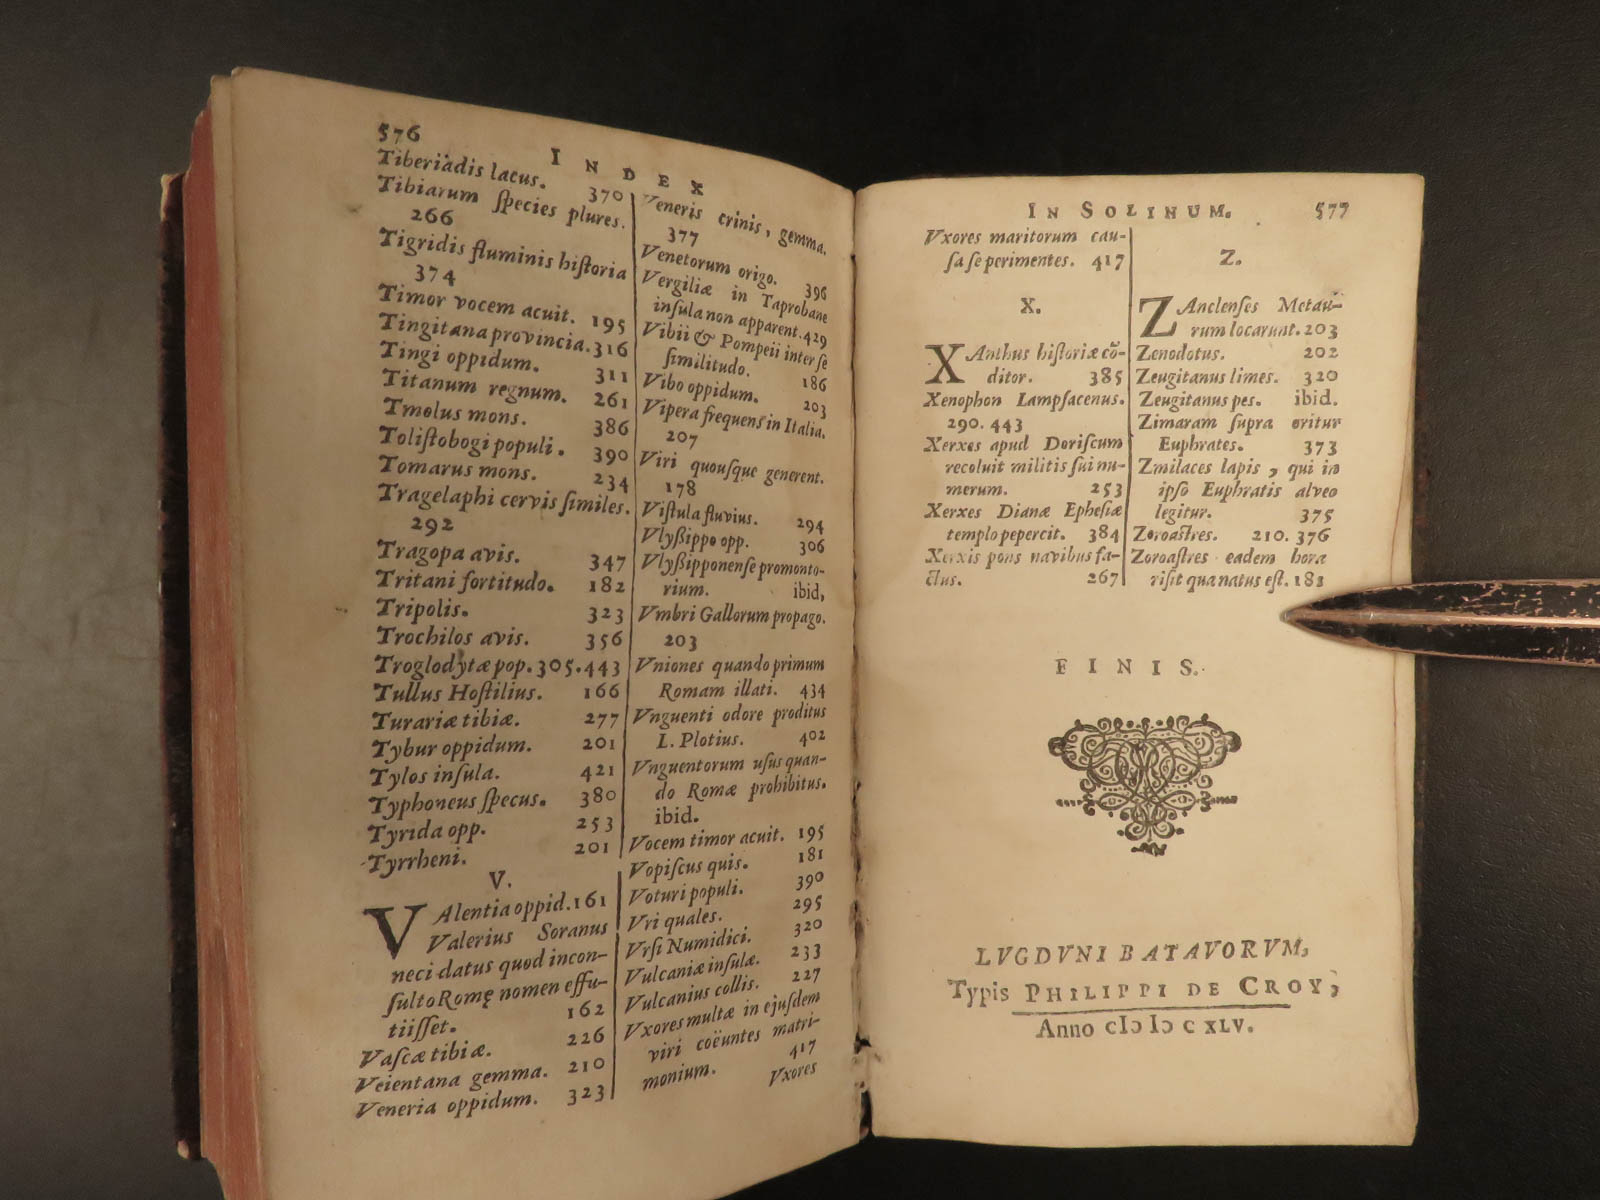 576
INDEX
Tiberiadis lacus. 370
Tibiarum ſpecies plures.
266
Tigridis fluminis hiſtoria
374
Timor vocem acuit. 195
Tingitana provincia. 316
Tingi oppidum. 311
Titanum regnum. 261
Tmolus mons. 386
Toliſtobogi populi. 390
Tomarus mons. 234
Tragelaphi cervis ſimiles.
292
Tragopa avis. 347
Tritani fortitudo. 182
Tripolis. 323
Trochilos avis. 356
Troglodytæ pop. 305. 443
Tullus Hoſtilius. 166
Turariæ tibiæ. 277
Tybur oppidum. 201
Tylos inſula. 421
Typhoneus ſpecus. 380
Tyrida opp. 253
Tyrrheni. 201
V.
VAlentia oppid. 161
Valerius Soranus
neci datus quod incon-
ſulto Romę nomen effu-
tiiſſet. 162
Vaſcæ tibiæ. 226
Veientana gemma. 210
Veneria oppidum. 323
Veneris crinis, gemma.
377
Venetorum origo. 396
Vergiliæ in Taprobane
inſula non apparent. 429
Vibii & Pompeii inter ſe
ſimilitudo. 186
Vibo oppidum. 203
Vipera frequens in Italia.
207
Viri quouſque generent.
178
Viſtula fluvius. 294
Vlyßippo opp. 306
Vlyßipponenſe promonto-
rium. ibid,
Vmbri Gallorum propago.
203
Vniones quando primum
Romam illati. 434
Vnguenti odore proditus
L. Plotius. 402
Vnguentorum uſus quan-
do Romæ prohibitus.
ibid.
Vocem timor acuit. 195
Vopiſcus quis. 181
Voturi populi. 390
Vri quales. 295
Vrſi Numidici. 320
Vulcaniæ inſulæ. 233
Vulcanius collis. 227
Vxores multæ in ejuſdem
viri coëuntes matri-
monium. 417
Vxores
IN SOLINUM. 577
Vxores maritorum cau-
ſa ſe perimentes. 417
X.
XAnthus hiſtoriæ cõ-
ditor. 385
Xenophon Lampſacenus.
290. 443
Xerxes apud Doriſcum
recoluit militis ſui nu-
merum. 253
Xerxes Dianæ Epheſiæ
templo pepercit. 384
Xerxis pons navibus fa-
ctus. 267
Z.
ZAnclenſes Metau-
rum locarunt. 203
Zenodotus. 202
Zeugitanus limes. 320
Zeugitanus pes. ibid.
Zimaram ſupra oritur
Euphrates. 373
Zmilaces lapis, qui in
ipſo Euphratis alveo
legitur. 375
Zoroaſtres. 210. 376
Zoroaſtres eadem hora
riſit qua natus eſt. 181
FINIS.
LVGDVNI BATAVORVM,
Typis PHILIPPI DE CROY,
Anno cIↄ Iↄ c XLV.